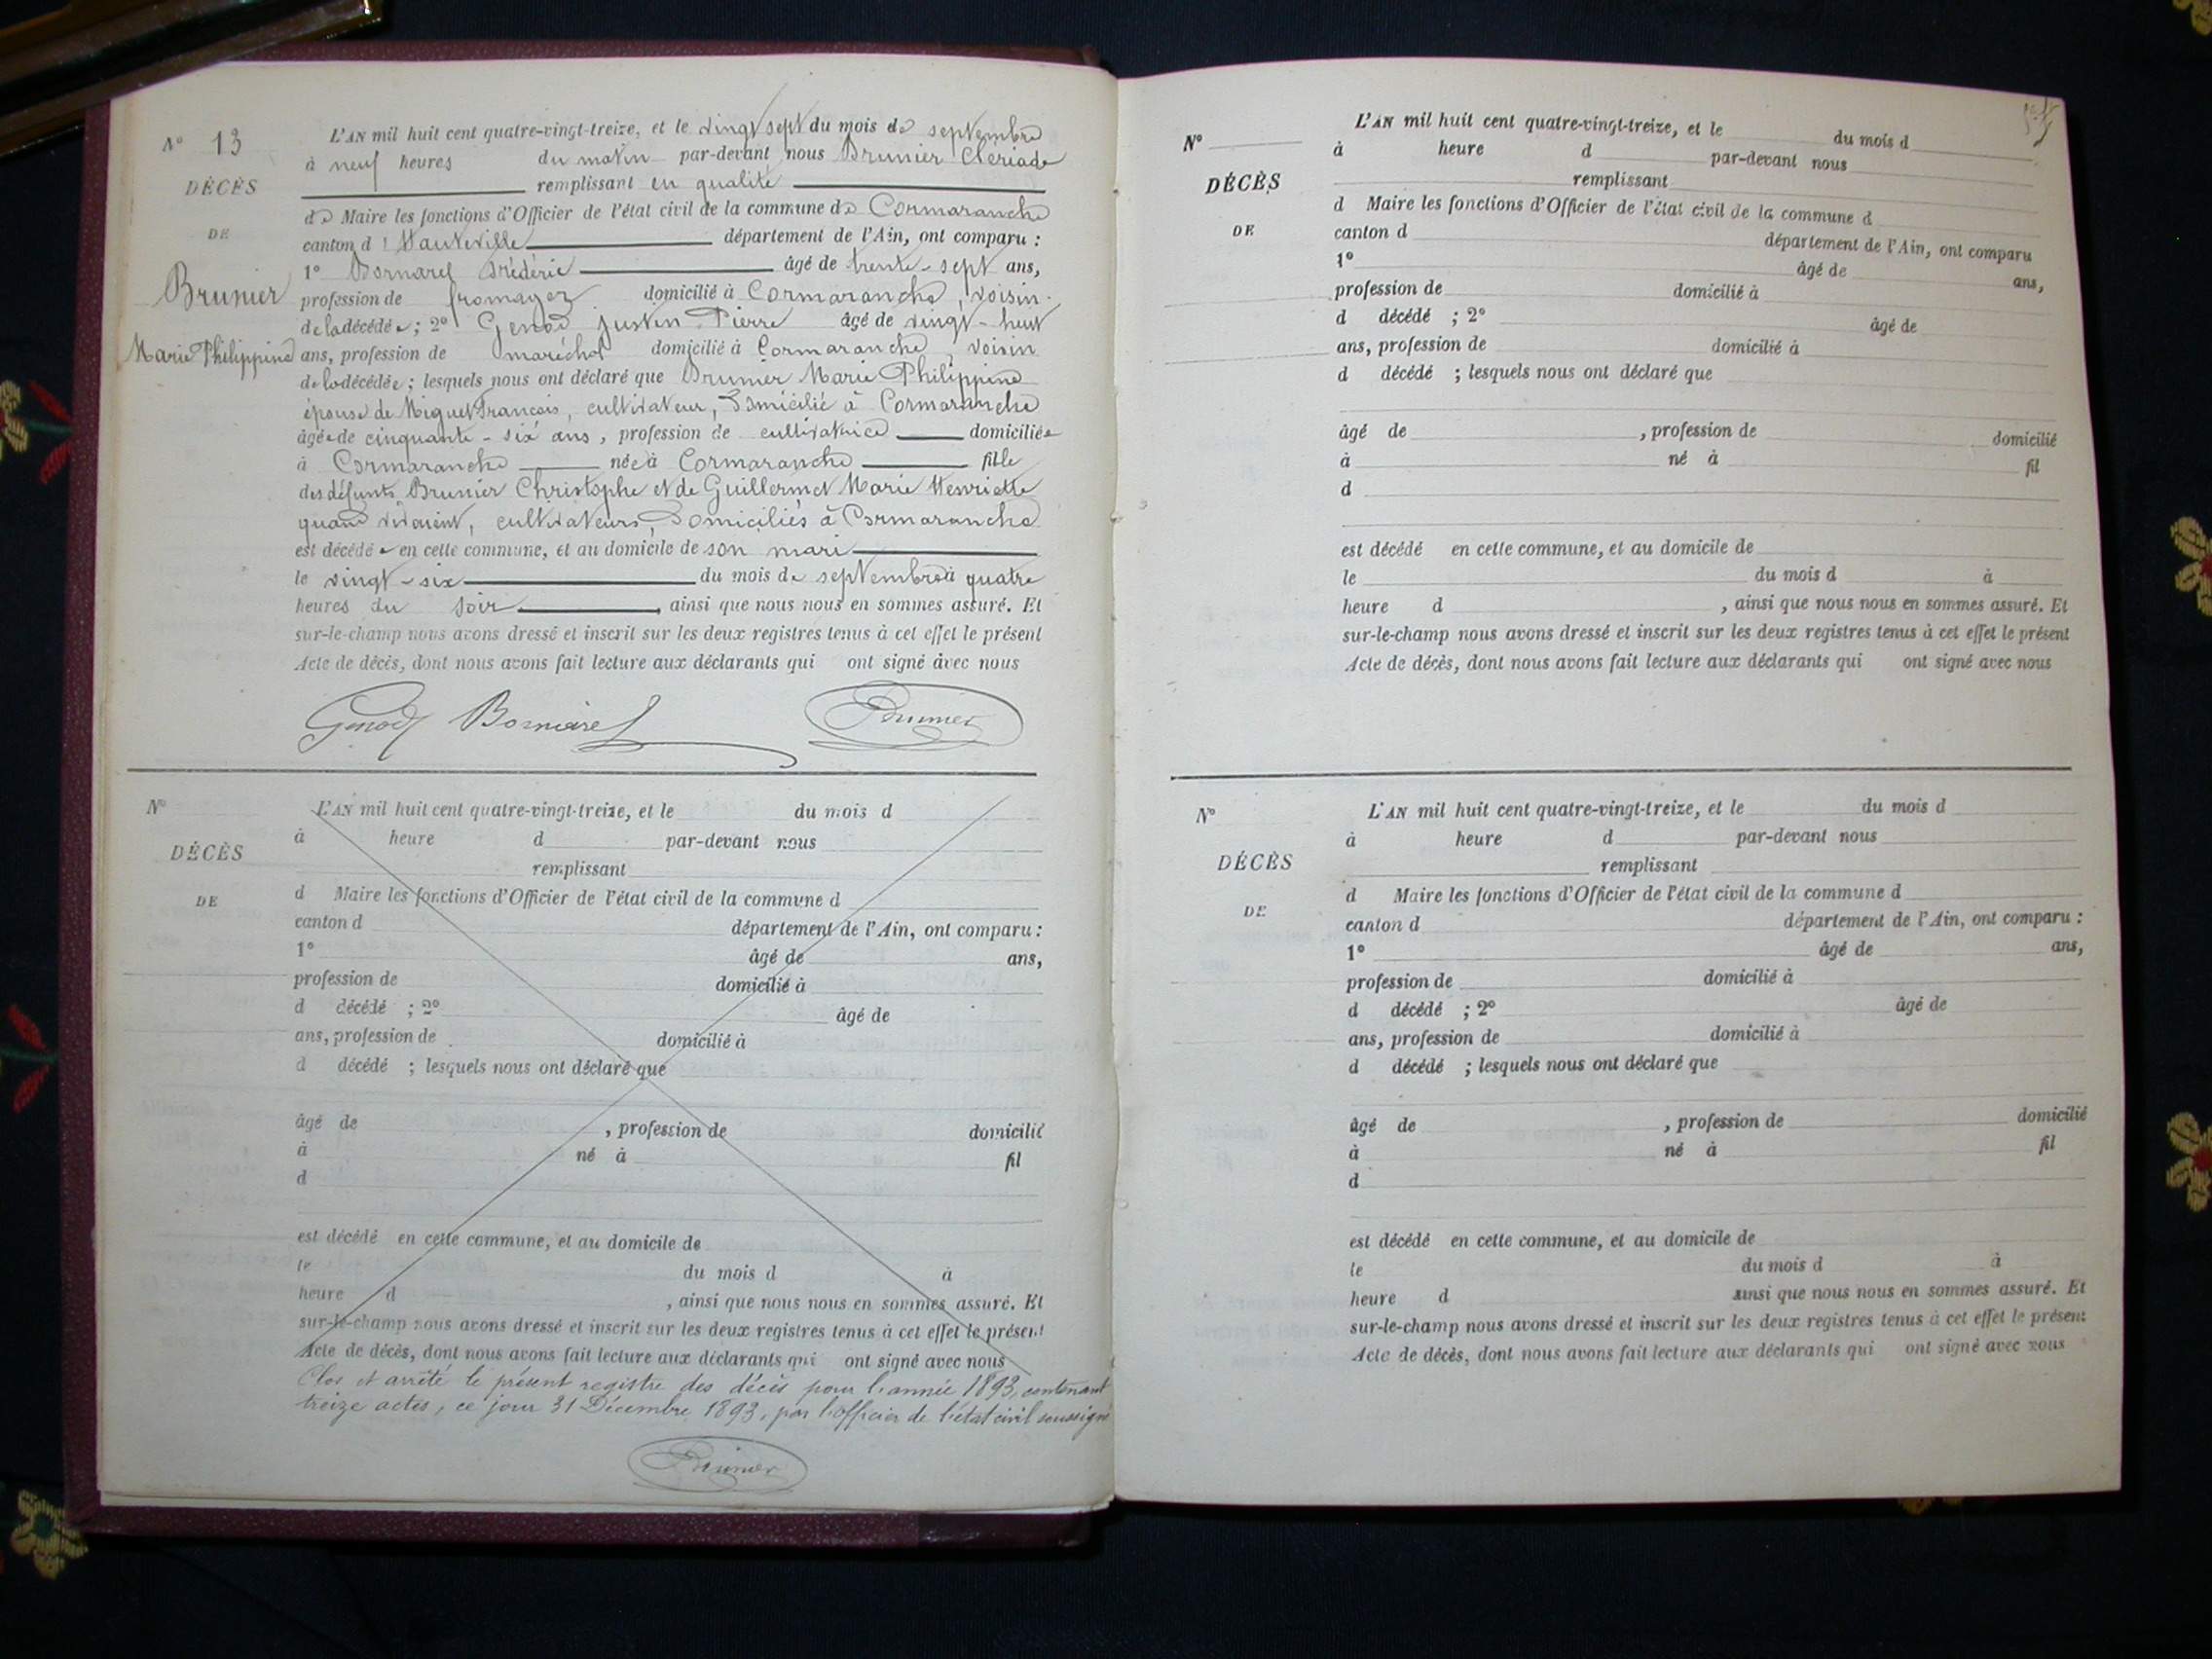 N° 13
DÉCÈS
DE
Brunier
Marie Philippine
L'AN mil huit cent quatre-vingt-treize, et le vingt sept du mois de septembre
à neuf heures du matin par-devant nous Brunier Clériade
remplissant en qualité
de Maire les fonctions d'Officier de l'état civil de la commune de Cormaranche
canton d'Hauteville département de l'Ain, ont comparu :
1° Bornarel Frédéric âgé de trente-sept ans,
profession de fromager domicilié à Cormaranche, voisin
de la décédée ; 2° Genod Justin Pierre âgé de vingt-huit
ans, profession de maréchal domicilié à Cormaranche, voisin
de la décédée ; lesquels nous ont déclaré que Brunier Marie Philippine
épouse de Miguet François, cultivateur, domicilié à Cormaranche
âgée de cinquante-six ans, profession de cultivatrice domiciliée
à Cormaranche née à Cormaranche fille
des défunts Brunier Christophe et de Guillermet Marie Henriette
quand vivaient, cultivateurs, domiciliés à Cormaranche
est décédée en cette commune, et au domicile de son mari
le vingt-six du mois de septembre à quatre
heures du soir, ainsi que nous nous en sommes assuré. Et
sur-le-champ nous avons dressé et inscrit sur les deux registres tenus à cet effet le présent
Acte de décès, dont nous avons fait lecture aux déclarants qui ont signé avec nous
Genod Bornarel Brunier
N°
DÉCÈS
DE
L'AN mil huit cent quatre-vingt-treize, et le du mois d
à heure d par-devant nous
remplissant
d Maire les fonctions d'Officier de l'état civil de la commune d
canton d département de l'Ain, ont comparu :
1° âgé de ans,
profession de domicilié à
d décédé ; 2° âgé de
ans, profession de domicilié à
d décédé ; lesquels nous ont déclaré que
âgé de , profession de domicilié
à né à fil
d
est décédé en cette commune, et au domicile de
le du mois d à
heure d , ainsi que nous nous en sommes assuré. Et
sur-le-champ nous avons dressé et inscrit sur les deux registres tenus à cet effet le présent
Acte de décès, dont nous avons fait lecture aux déclarants qui ont signé avec nous
Clos et arrêté le présent registre des décès pour l'année 1893, contenant
treize actes, ce jour 31 Décembre 1893, par l'officier de l'état civil soussigné
Brunier
N°
DÉCÈS
DE
L'AN mil huit cent quatre-vingt-treize, et le du mois d
à heure d par-devant nous
remplissant
d Maire les fonctions d'Officier de l'état civil de la commune d
canton d département de l'Ain, ont comparu
1° âgé de ans,
profession de domicilié à
d décédé ; 2° âgé de
ans, profession de domicilié à
d décédé ; lesquels nous ont déclaré que
âgé de , profession de domicilié
à né à fil
d
est décédé en cette commune, et au domicile de
le du mois d à
heure d , ainsi que nous nous en sommes assuré. Et
sur-le-champ nous avons dressé et inscrit sur les deux registres tenus à cet effet le présent
Acte de décès, dont nous avons fait lecture aux déclarants qui ont signé avec nous
N°
DÉCÈS
DE
L'AN mil huit cent quatre-vingt-treize, et le du mois d
à heure d par-devant nous
remplissant
d Maire les fonctions d'Officier de l'état civil de la commune d
canton d département de l'Ain, ont comparu :
1° âgé de ans,
profession de domicilié à
d décédé ; 2° âgé de
ans, profession de domicilié à
d décédé ; lesquels nous ont déclaré que
âgé de , profession de domicilié
à né à fil
d
est décédé en cette commune, et au domicile de
le du mois d à
heure d ainsi que nous nous en sommes assuré. Et
sur-le-champ nous avons dressé et inscrit sur les deux registres tenus à cet effet le présent
Acte de décès, dont nous avons fait lecture aux déclarants qui ont signé avec nous